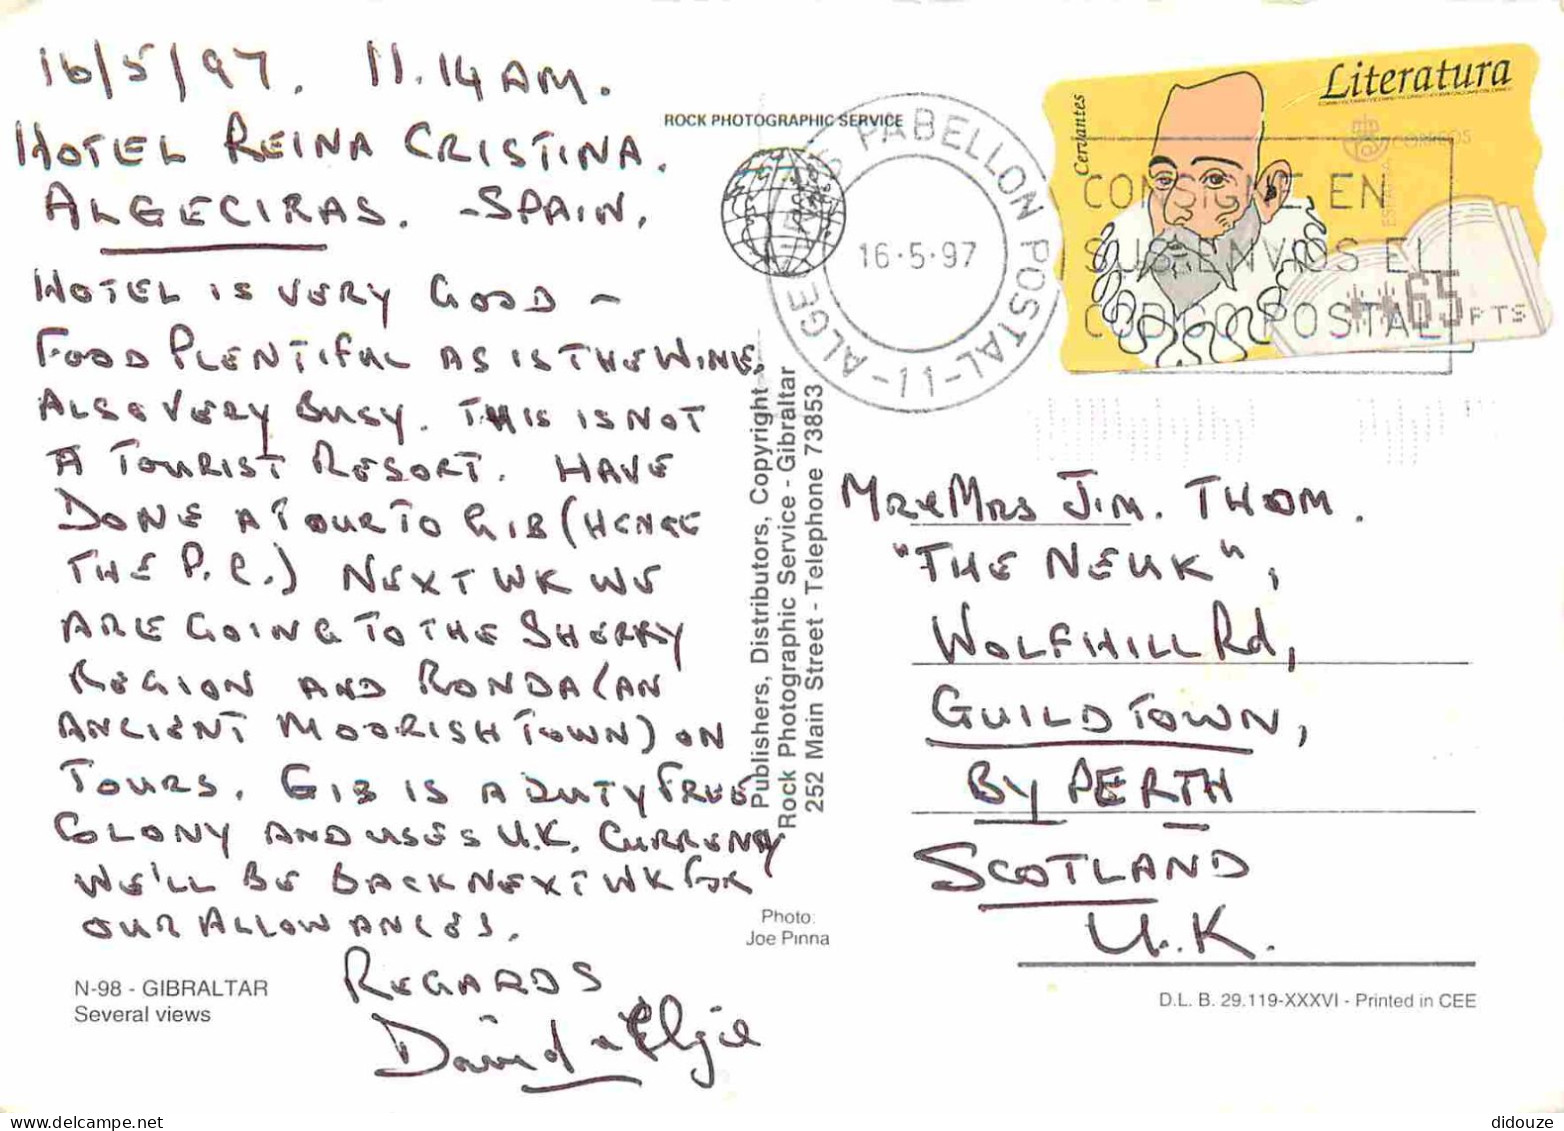 16/5/97. 11.14AM.
HOTEL REINA CRISTINA.
ALGECIRAS. -SPAIN.
HOTEL IS VERY GOOD -
FOOD PLENTIFUL AS IS THE WINE.
ALSO VERY BUSY. THIS IS NOT
A TOURIST RESORT. HAVE
DONE A TOUR TO GIB (HENCE
THE P.C.) NEXT WK WE
ARE GOING TO THE SHERRY
REGION AND RONDA (AN
ANCIENT MOORISH TOWN) ON
TOURS. GIB IS A DUTY FREE
COLONY AND USES U.K. CURRENCY
WE'LL BE BACK NEXT WK FOR
OUR ALLOWANCES.
REGARDS
David &
N-98 - GIBRALTAR
Several views
ROCK PHOTOGRAPHIC SERVICE
Publishers, Distributors, Copyright
Rock Photographic Service - Gibraltar
252 Main Street - Telephone 73853
Photo:
Joe Pinna
PABELLON POSTAL -11- ALGECIRAS
16·5·97
Literatura
Cervantes
CORREOS
ESPAÑA
CONSIGNE EN
SUS ENVIOS EL
CODIGO POSTAL
**65 PTS
MR & MRS JIM. THOM.
"THE NEUK",
WOLFHILL Rd,
GUILDTOWN,
BY PERTH
SCOTLAND
U.K.
D.L. B. 29.119-XXXVI - Printed in CEE
didouze